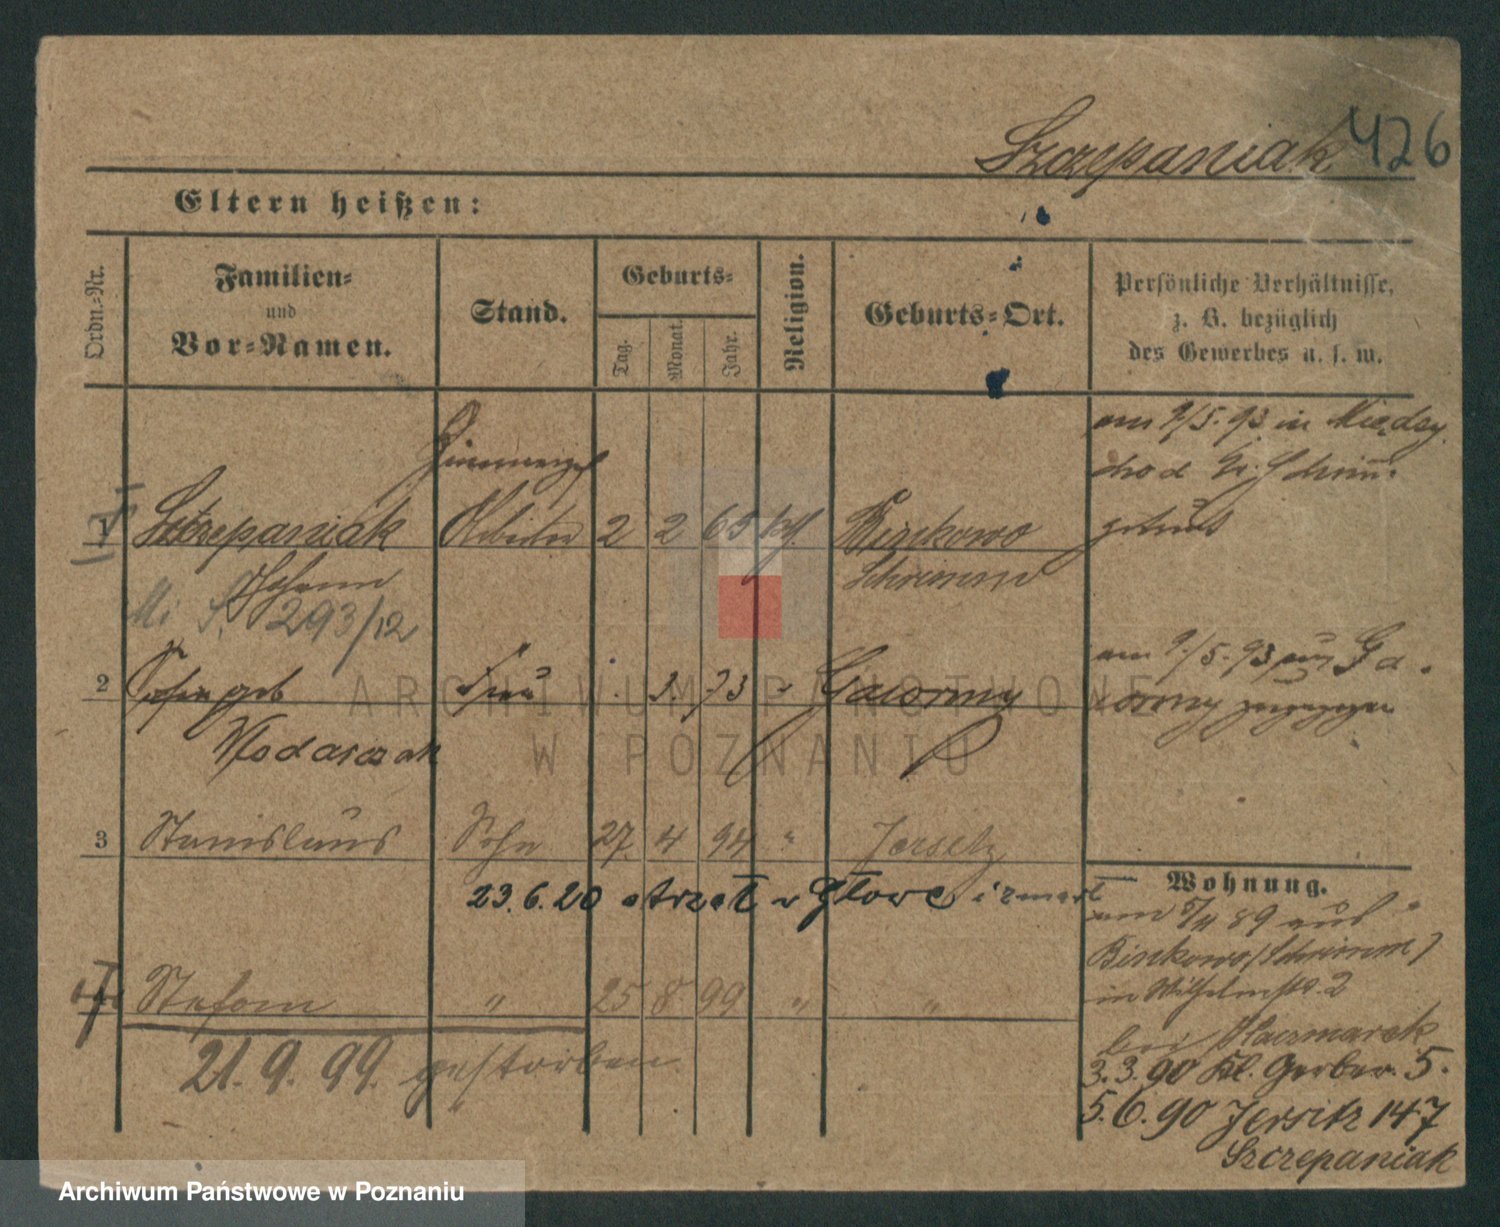 Szczepaniak 426
Eltern heißen:
Ordn.-Nr.
Familien-
und
Vor-Namen.
Stand.
Geburts-
Tag.
Monat.
Jahr.
Religion.
Geburts-Ort.
Persönliche Verhältnisse,
z. B. bezüglich
des Gewerbes u. s. w.
am 9/5. 93 in
1 Szczepaniak Arbeiter 2 2 65 kth. Binkowo
Johann Schrimm
293/12
2 geb Frau 73 Gaworny
Wodarczak
am 9./5. 93
3 Stanislaus Sohn 27. 4 94 " Jersitz
23.6.20 strzał w głowę i zmarł
Stefan " 25 8 99 " "
21. 9. 99. gestorben.
Wohnung.
am 5/11 89 aus
Binkowo (Schrimm)
in Wilhelmstr. 2
bei Kaczmarek
3. 3. 90 Kl. Gerber. 5.
5. 6. 90 Jersitz 147
Szczepaniak
ARCHIWUM PAŃSTWOWE
W POZNANIU
Archiwum Państwowe w Poznaniu